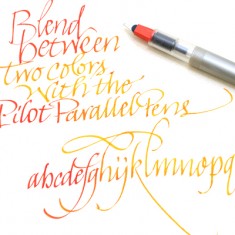 Blend
between
two colors
with the
Pilot Parallel Pens
abcdefghijklmnopq